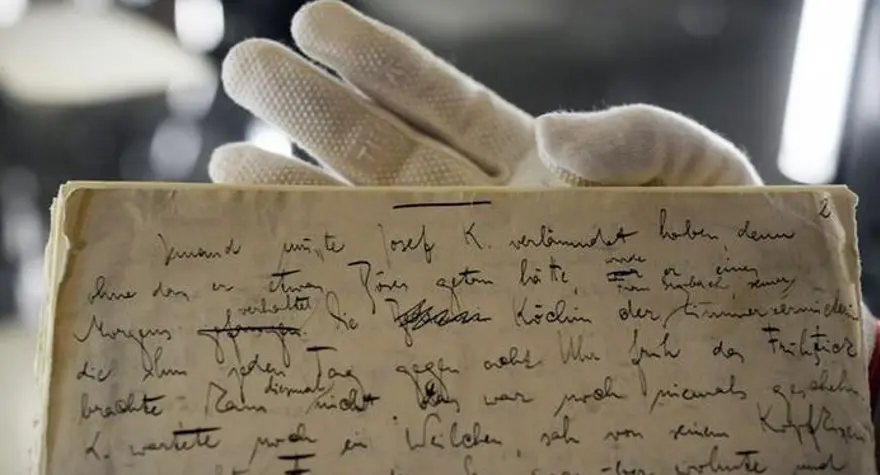 2
Jemand mußte Josef K. verläumdet haben, denn
ohne daß er etwas Böses getan hätte, wurde er eines
verhaftet Frau Grubach, seiner
Morgens gefangen. Die Köchin der Zimmervermieterin
die ihm jeden Tag gegen acht Uhr früh das Frühstück
brachte kam diesmal nicht. Das war noch niemals geschehn.
K. wartete noch ein Weilchen, sah von seinem Kopfkissen
wohnte und